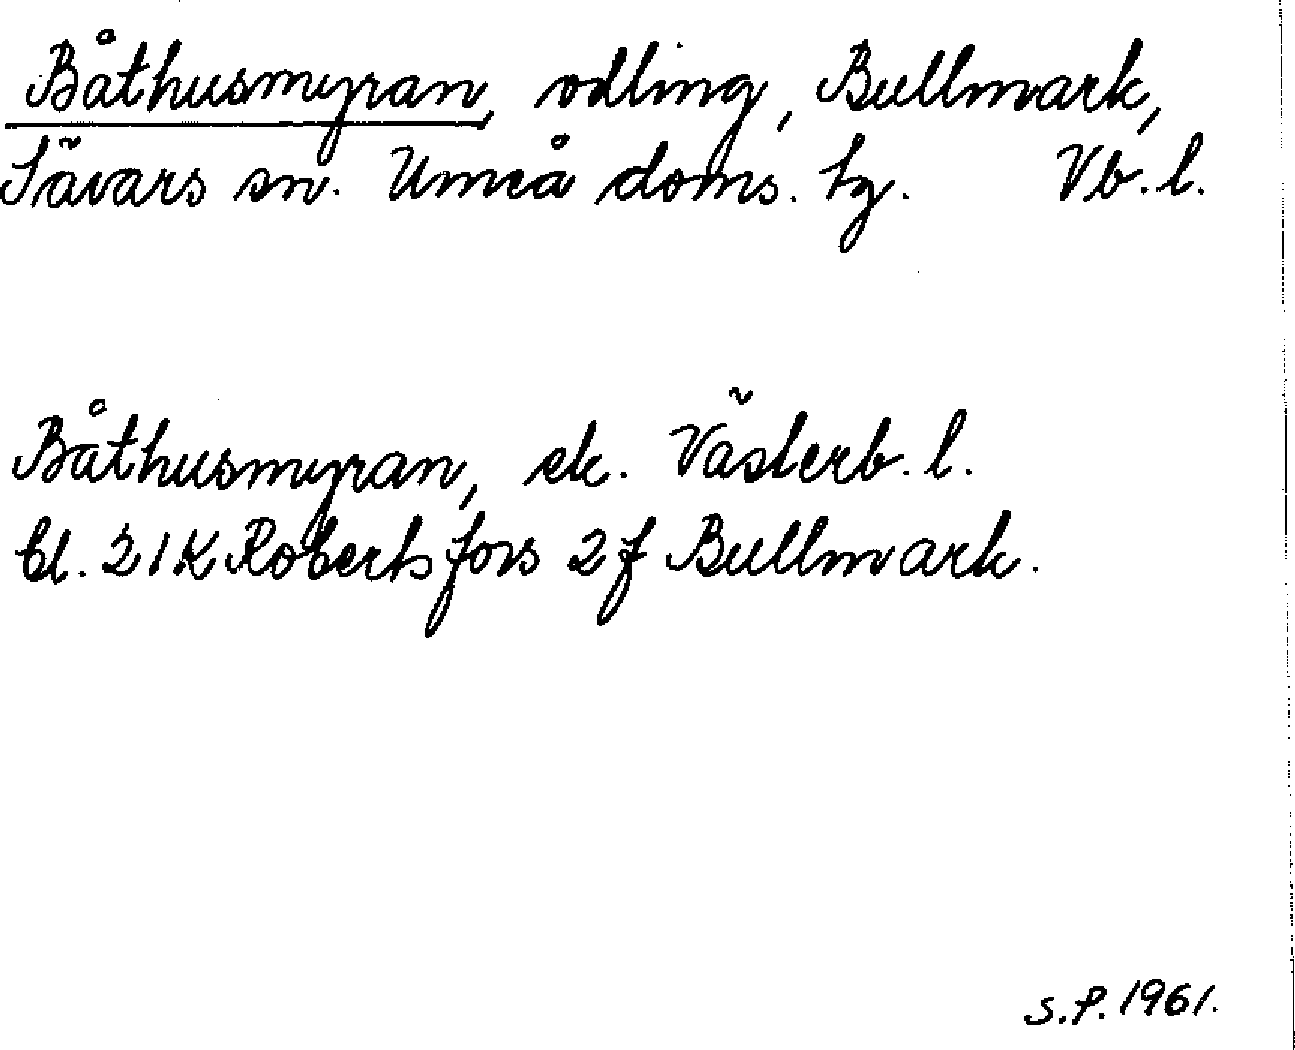 Båthusmyran, odling, Bullmark,
Sävars sn. Umeå doms. tg. Vb. l.
Båthusmyran, ek. Västerb. l.
bl. 21K Robertsfors 2f Bullmark.
S.P. 1961.